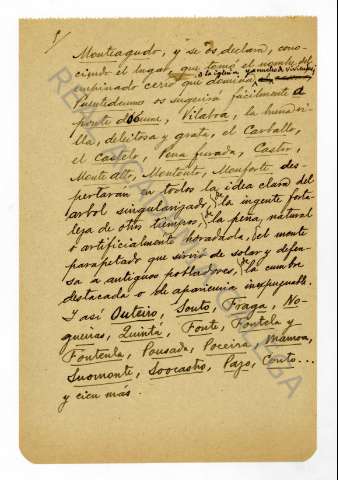 5/
Monteagudo, y se os declara, cono-
ciendo el lugar, que tomó el nombre del
o la iglesia y a muchas viviendas,
empinado cerro que domina
Puentedeume os sugerirá fácilmente a
ponte d'Oeume, Vilaboa, la heredi-
lla, deleitosa y grata, el Carballo,
el Castelo, Pena furada, Castro,
Monte alto, Montouto, Monforte des-
pertarán en todos la idea clara del
árbol singularizado, de la ingente forta-
leza de otros tiempos, de la peña, natural
o artificialmente horadada, del monte
parapetado que sirvió de solar y defen-
sa a antiguos pobladores, de la cumbre
destacada o de apariencia inexpugnable.
Y así Outeiro, Souto, Fraga, No-
gueiras, Quintá, Fonte, Fontela y
Fontenla, Pousada, Poceira, Mámoa,
Suomonte, Soocastro, Pazo, Couto...
y cien más.
REAL ACADEMIA GALEGA